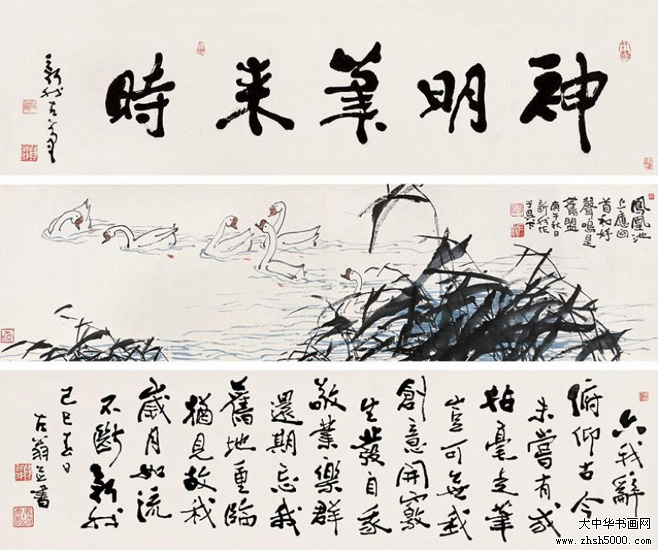 神明筆来時
新我左筆
鳳凰池
上應囬
首和好
聲鳴是
舊盟
庚午秋日
六我辭
俯仰古今
未嘗有我
拈毫走筆
豈可無我
創意開竅
生發自我
敬業樂群
還期忘我
舊地重臨
猶見故我
歲月如流
不斷新我
己巳春日
左翁并書
大中华书画网
www.zhsh5000.com